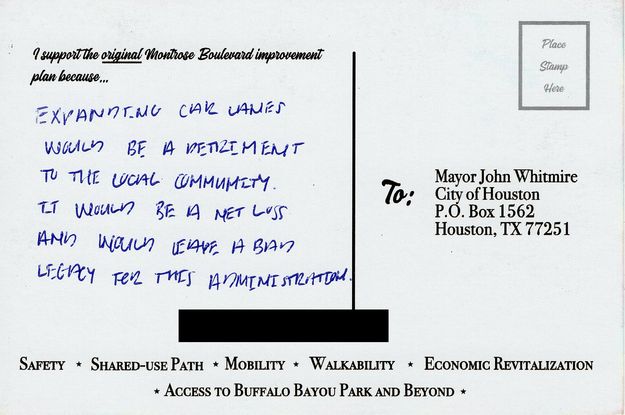 I support the original Montrose Boulevard improvement
plan because...
EXPANDING CAR LANES
WOULD BE A DETRIMENT
TO THE LOCAL COMMUNITY.
IT WOULD BE A NET LOSS
AND WOULD LEAVE A BAD
LEGACY FOR THIS ADMINISTRATION.
Place
Stamp
Here
To:
Mayor John Whitmire
City of Houston
P.O. Box 1562
Houston, TX 77251
SAFETY ★ SHARED-USE PATH ★ MOBILITY ★ WALKABILITY ★ ECONOMIC REVITALIZATION
★ ACCESS TO BUFFALO BAYOU PARK AND BEYOND ★